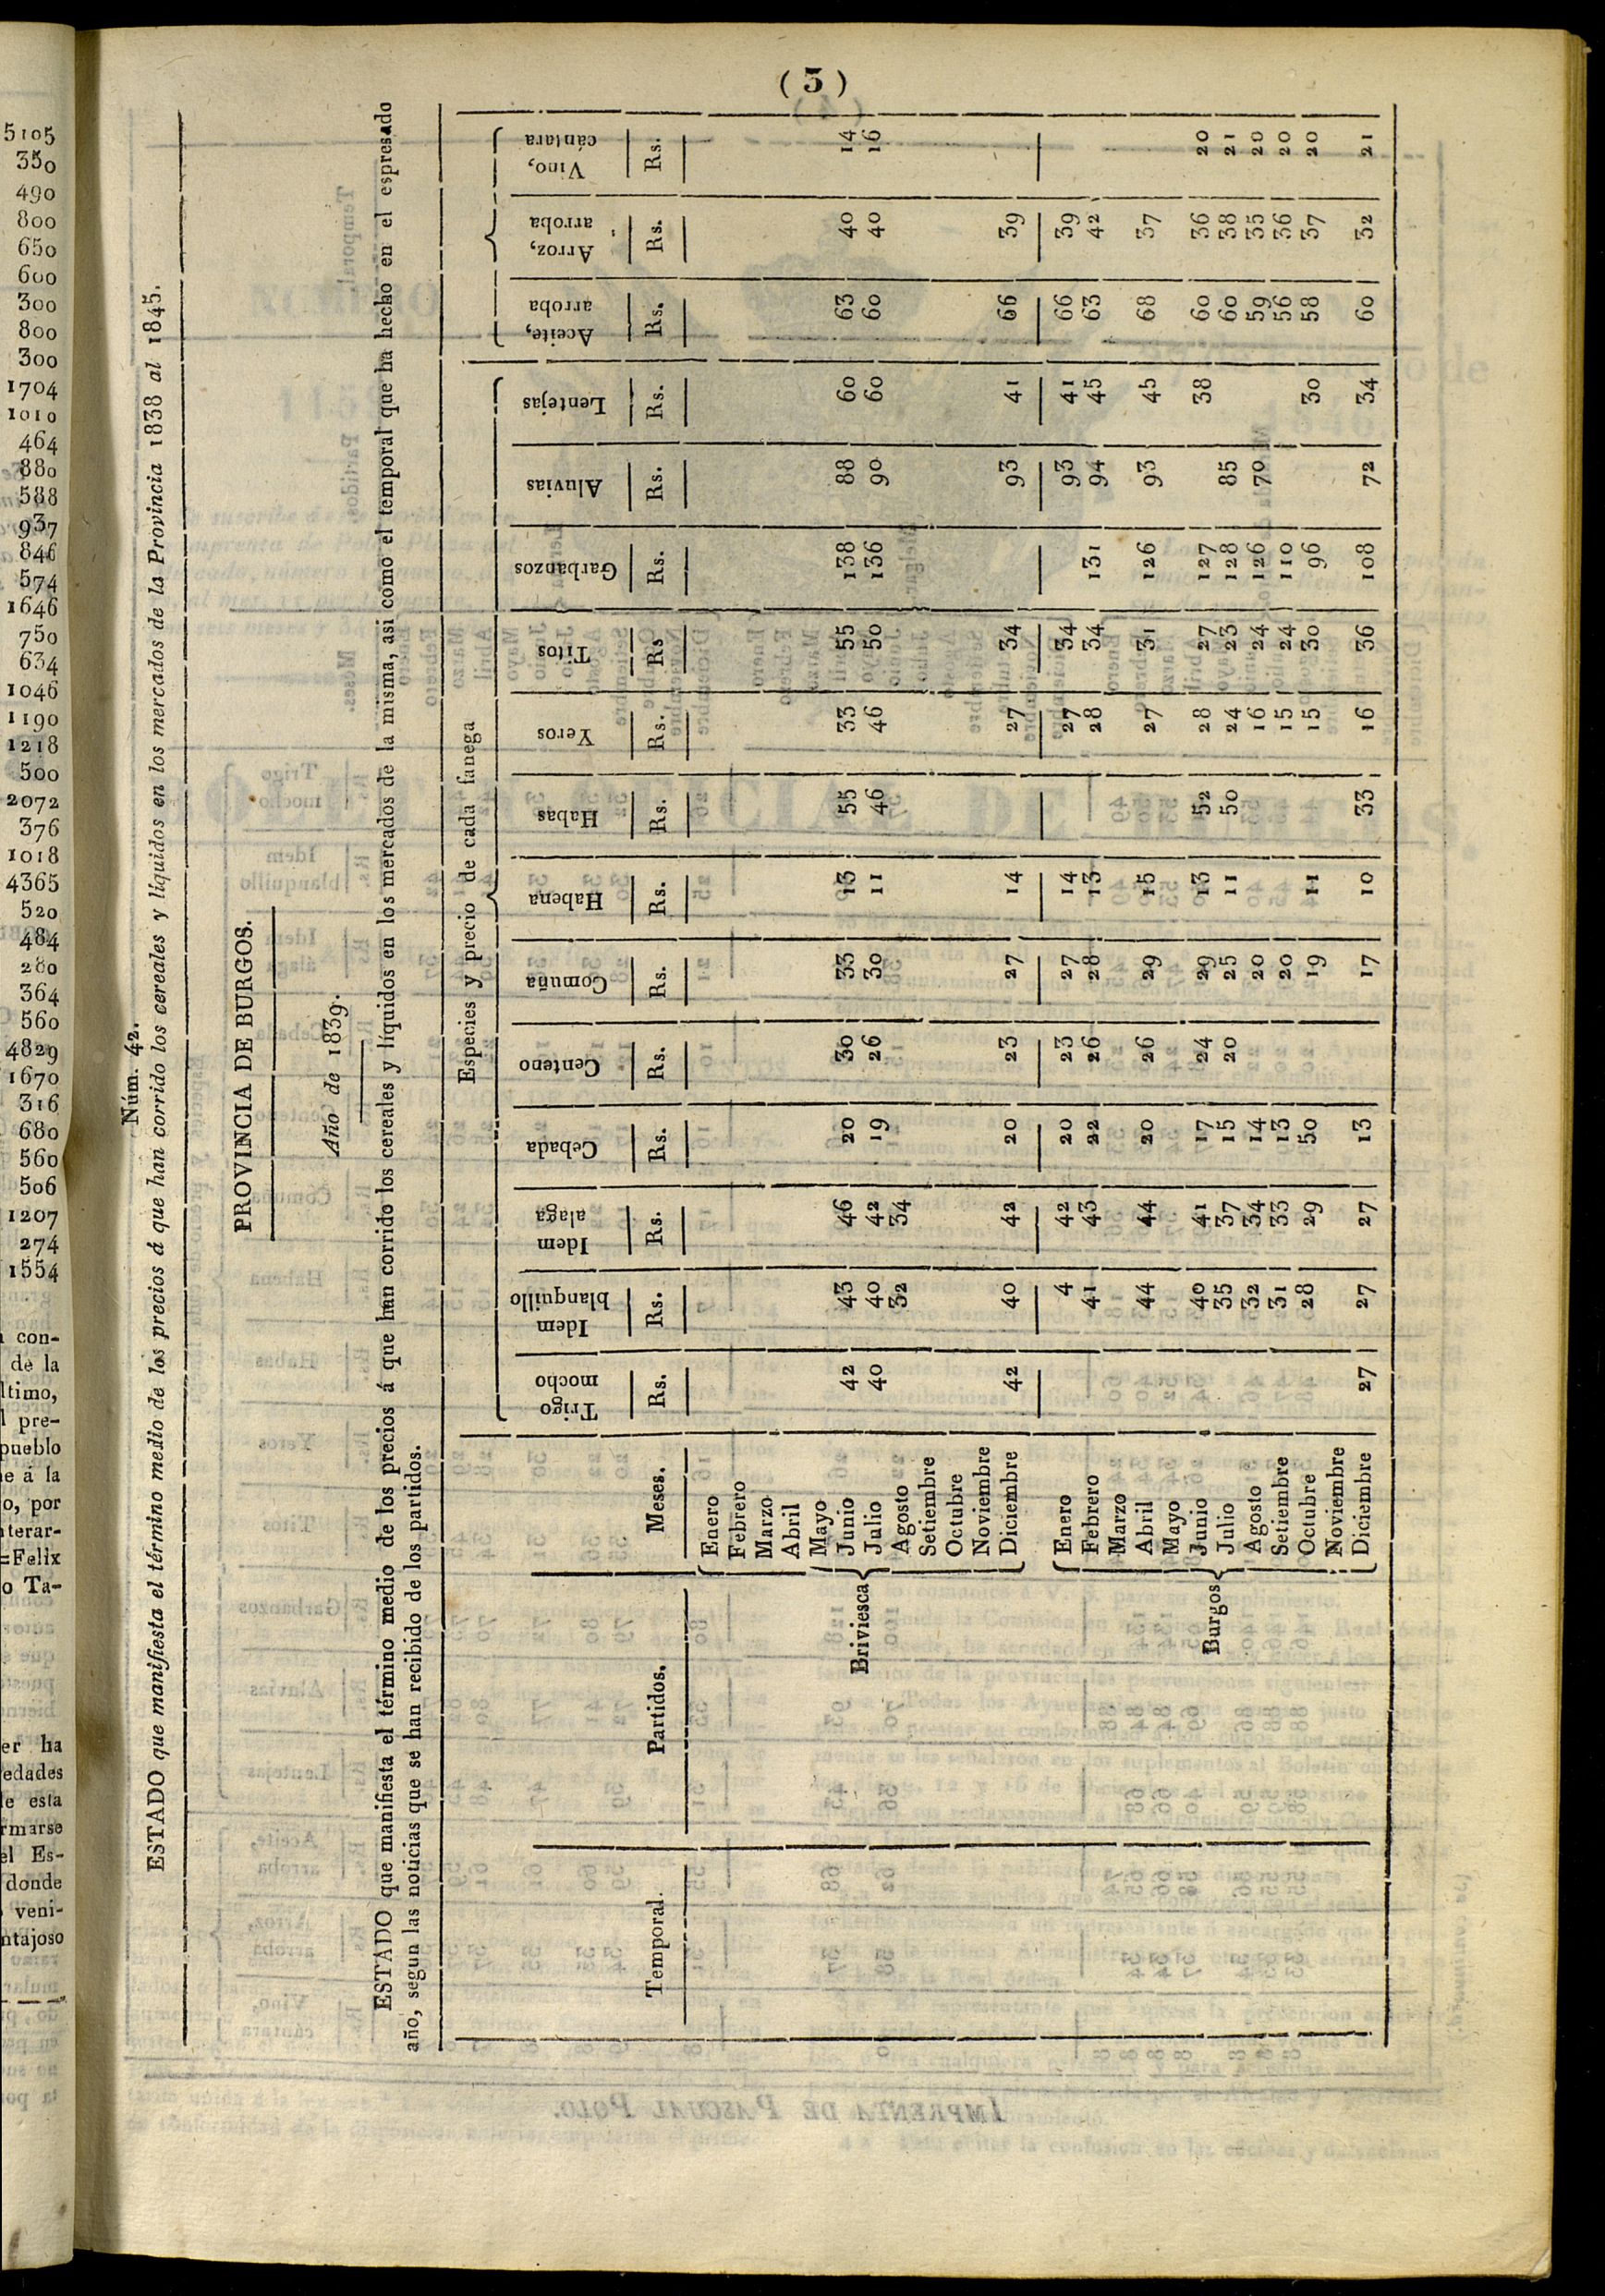 5105
350
490
800
650
600
300
800
300
1704
1010
464
880
588
937
846
574
1646
750
634
1046
1190
1218
500
2072
376
1018
4365
520
484
280
364
560
4829
1670
316
680
560
506
1207
274
1554
con-
de la
ltimo,
pre-
pueblo
e á la
o, por
nterar-
=Felix
o Ta-
er ha
edades
le esta
rmarse
el Es-
donde
veni-
ntajoso
(3)
Núm. 42.
ESTADO que manifiesta el término medio de los precios á que han corrido los cereales y líquidos en los mercados de la Provincia 1838 al 1845.
PROVINCIA DE BURGOS.
Año de 1839.
ESTADO que manifiesta el término medio de los precios á que han corrido los cereales y líquidos en los mercados de la misma, asi como el temporal que ha hecho en el espresado
año, segun las noticias que se han recibido de los partidos.
Especies y precio de cada fanega
Temporal. Partidos. Meses. Trigo mocho Idem blanquillo Idem alaga Cebada Centeno Comuña Habena Habas Yeros Titos Garbanzos Aluvias Lentejas Aceite, arroba Arroz, arroba Vino, cántara
Rs. Rs. Rs. Rs. Rs. Rs. Rs. Rs. Rs. Rs Rs. Rs. Rs. Rs. Rs. Rs.
Briviesca
Enero
Febrero
Marzo
Abril
Mayo
Junio 42 43 46 20 30 33 13 55 33 55 138 88 60 63 40 14
Julio 40 40 42 19 26 30 11 46 46 50 136 90 60 60 40 16
Agosto 32 34
Setiembre
Octubre
Noviembre
Diciembre 42 40 42 20 23 27 14 27 34 93 41 66 39
Burgos
Enero 4 42 20 23 27 14 27 34 93 41 66 39
Febrero 41 43 22 26 28 13 28 34 131 94 45 63 42
Marzo
Abril 44 44 20 26 29 15 27 31 126 93 45 68 37
Mayo
Junio 40 41 17 24 29 13 52 28 27 127 38 60 36 20
Julio 35 37 15 20 25 11 50 24 23 128 85 60 38 21
Agosto 32 34 14 20 16 24 126 70 59 35 20
Setiembre 31 33 13 20 15 24 110 56 36 20
Octubre 28 29 50 19 11 15 30 96 30 58 37 20
Noviembre
Diciembre 27 27 27 13 17 10 33 16 36 108 72 34 60 32 21